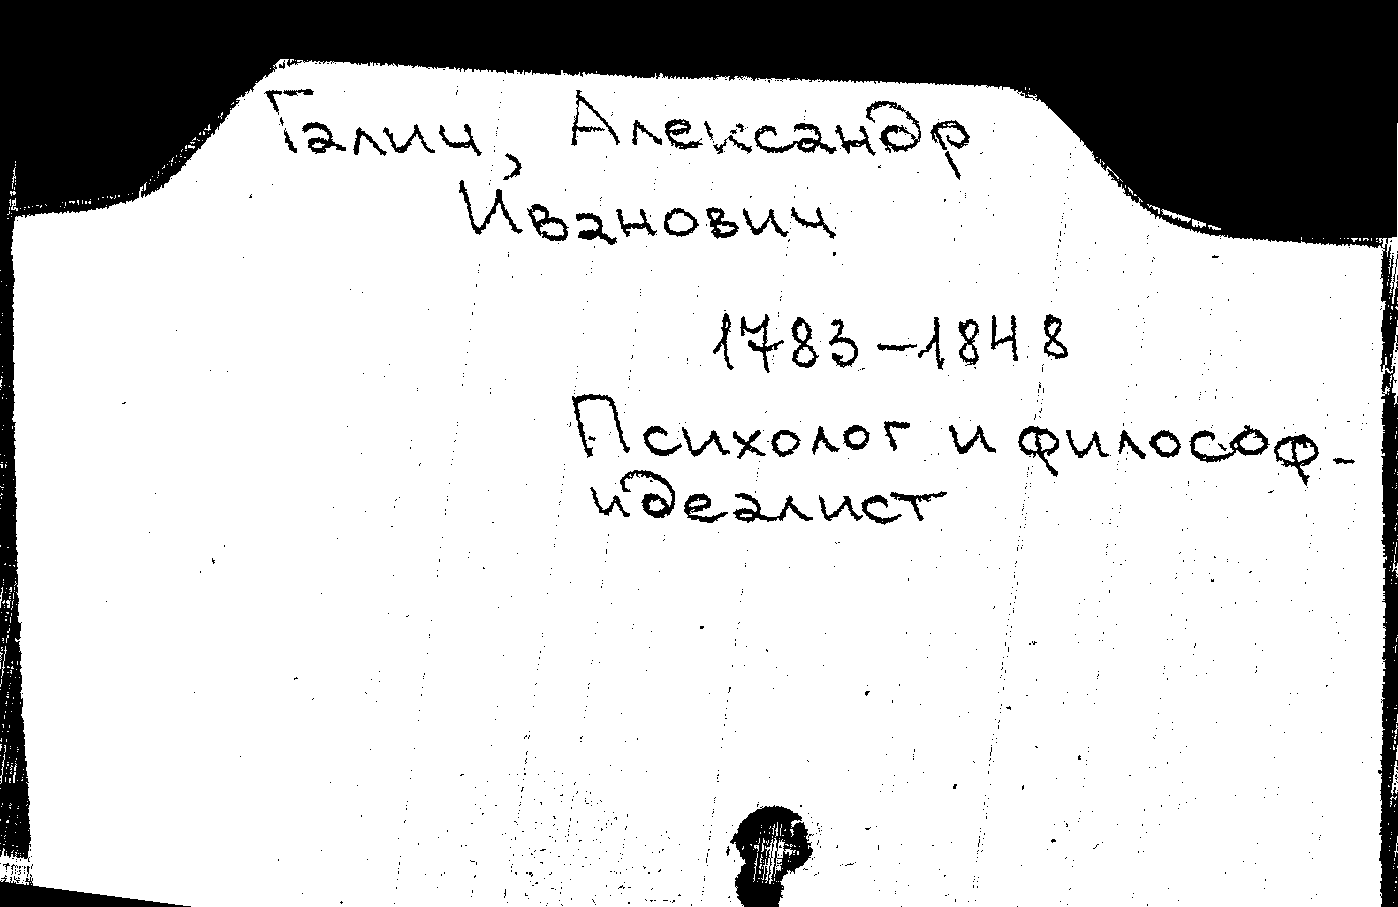 Галич, Александр
Иванович
1783-1848
Психолог и философ-
идеалист